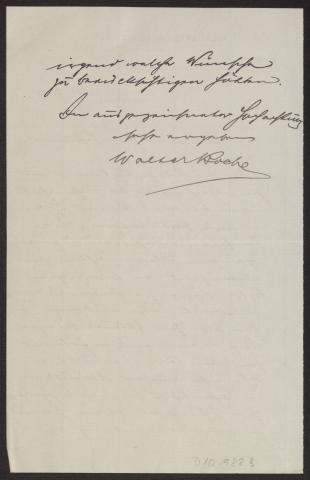 irgend welche Wünsche
zu berücksichtigen hätten.
In ausgezeichneter Hochachtung
sehr ergeben
Walter Koche